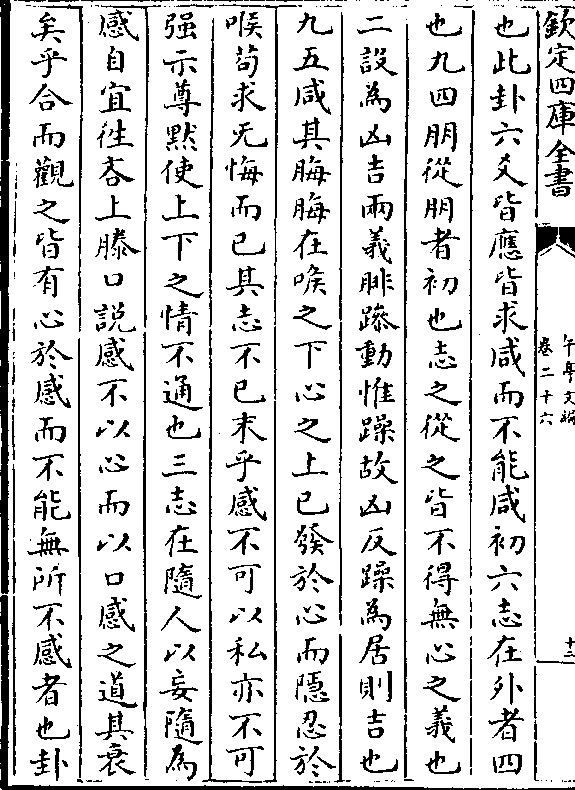 欽定四庫全書
午亭文編
卷二十六
十三
也此卦六爻皆應皆求咸而不能咸初六志在外者四
也九四朋從朋者初也志之從之皆不得無心之義也
二設為凶吉兩義腓躁動惟躁故凶反躁為居則吉也
九五咸其脢脢在喉之下心之上已發於心而隱忍於
喉苟求无悔而已其志不已末乎感不可以私亦不可
强示尊默使上下之情不通也三志在隨人以妄隨為
感自宜徃吝上滕口説感不以心而以口感之道其衰
矣乎合而觀之皆有心於感而不能無所不感者也卦